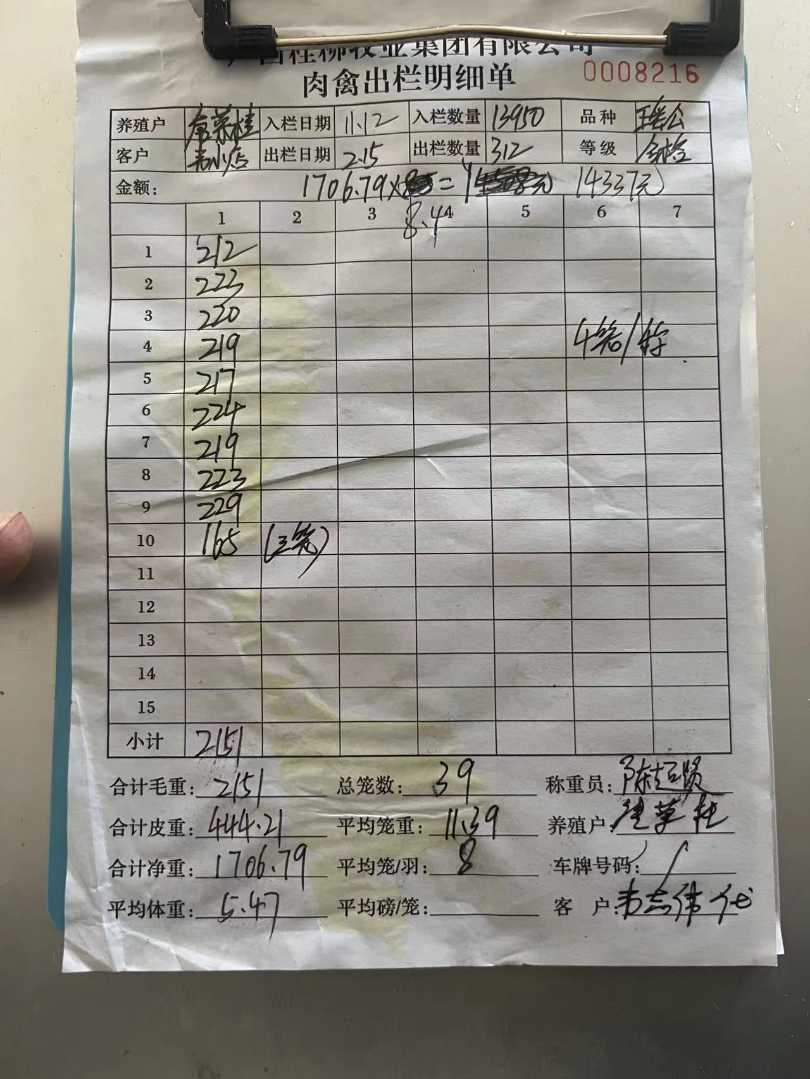 广西桂柳牧业集团有限公司
肉禽出栏明细单 0008216
养殖户 入栏日期 11.12 入栏数量 13950 品种
客户 出栏日期 2.15 出栏数量 312 等级
金额: 1706.79× = (14337元)
8.4
1 2 3 4 5 6 7
1 212
2 223
3 220
4 219 4笼/
5 217
6 224
7 219
8 223
9 229
10 165 (三笼)
11
12
13
14
15
小计 2151
合计毛重: 2151 总笼数: 39 称重员: 陈超贤
合计皮重: 444.21 平均笼重: 11.39 养殖户:
合计净重: 1706.79 平均笼/羽: 8 车牌号码: /
平均体重: 5.47 平均磅/笼: 客 户: 韦志伟 代